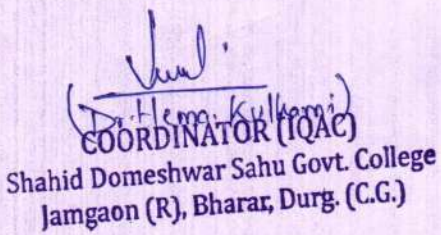 (Dr. Hema Kulkarni)
COORDINATOR (IQAC)
Shahid Domeshwar Sahu Govt. College
Jamgaon (R), Bharar, Durg. (C.G.)